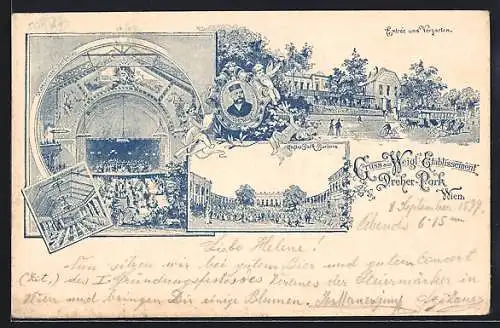 Entrée und Vorgarten.
Gruss aus Weigl's Etablissement
Dreher-Park
Wien.
1 September 1897
Abends 6·15
Liebe Helene!
Nun sitzen wir bei gutem Bier und gutem Concert
des I Gründungsfestes Vereines der Steiermärker in
Wien und bringen Dir einige Blumen.